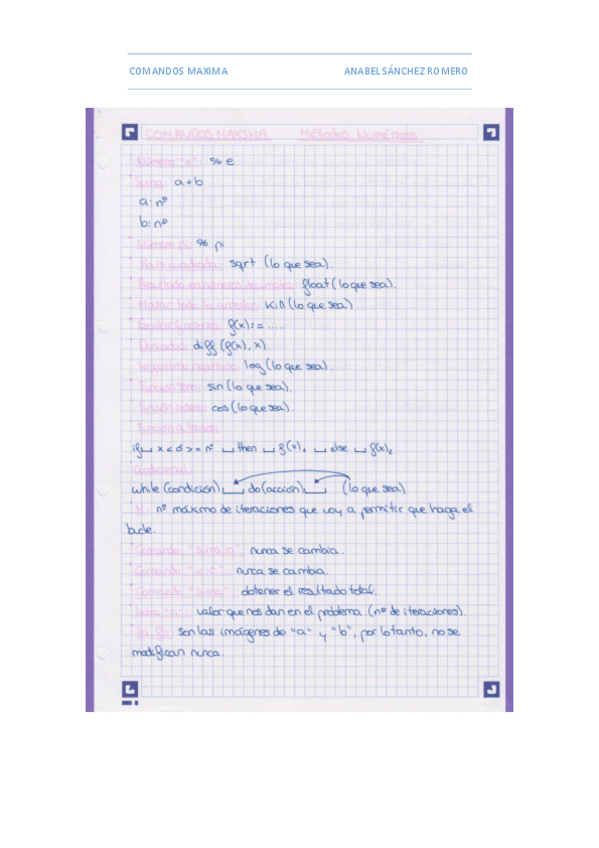 COMANDOS MAXIMA ANABEL SÁNCHEZ ROMERO
COMANDOS MAXIMA Métodos Numéricos
Número "e": % e
Suma: a + b
a: nº
b: nº
Número pi: % pi
Raíz cuadrada: sqrt (lo que sea).
Resultado en números decimales: float (lo que sea).
Mostrar todo lo anterior: Kill (lo que sea)
Escribir funciones: f(x):= .....
Derivadas: diff (f(x), x).
Logaritmo neperiano: log (lo que sea).
Función seno: sin (lo que sea).
Función coseno: cos (lo que sea).
Función a trozos:
if ␣ x < ó > = nº ␣ then ␣ f(x)₁ ␣ else ␣ f(x)₂
Condicional:
while (condición) ␣ do (acción) ␣ (lo que sea)
N: nº máximo de iteraciones que voy a permitir que haga el
bucle.
Comando "suma:0": nunca se cambia.
Comando "k:0": nunca se cambia.
Comando "suma": obtener el resultado total.
Letra "n": valor que nos dan en el problema. (nº de iteraciones).
fa, fb: son las imágenes de "a" y "b", por lo tanto, no se
modifican nunca.